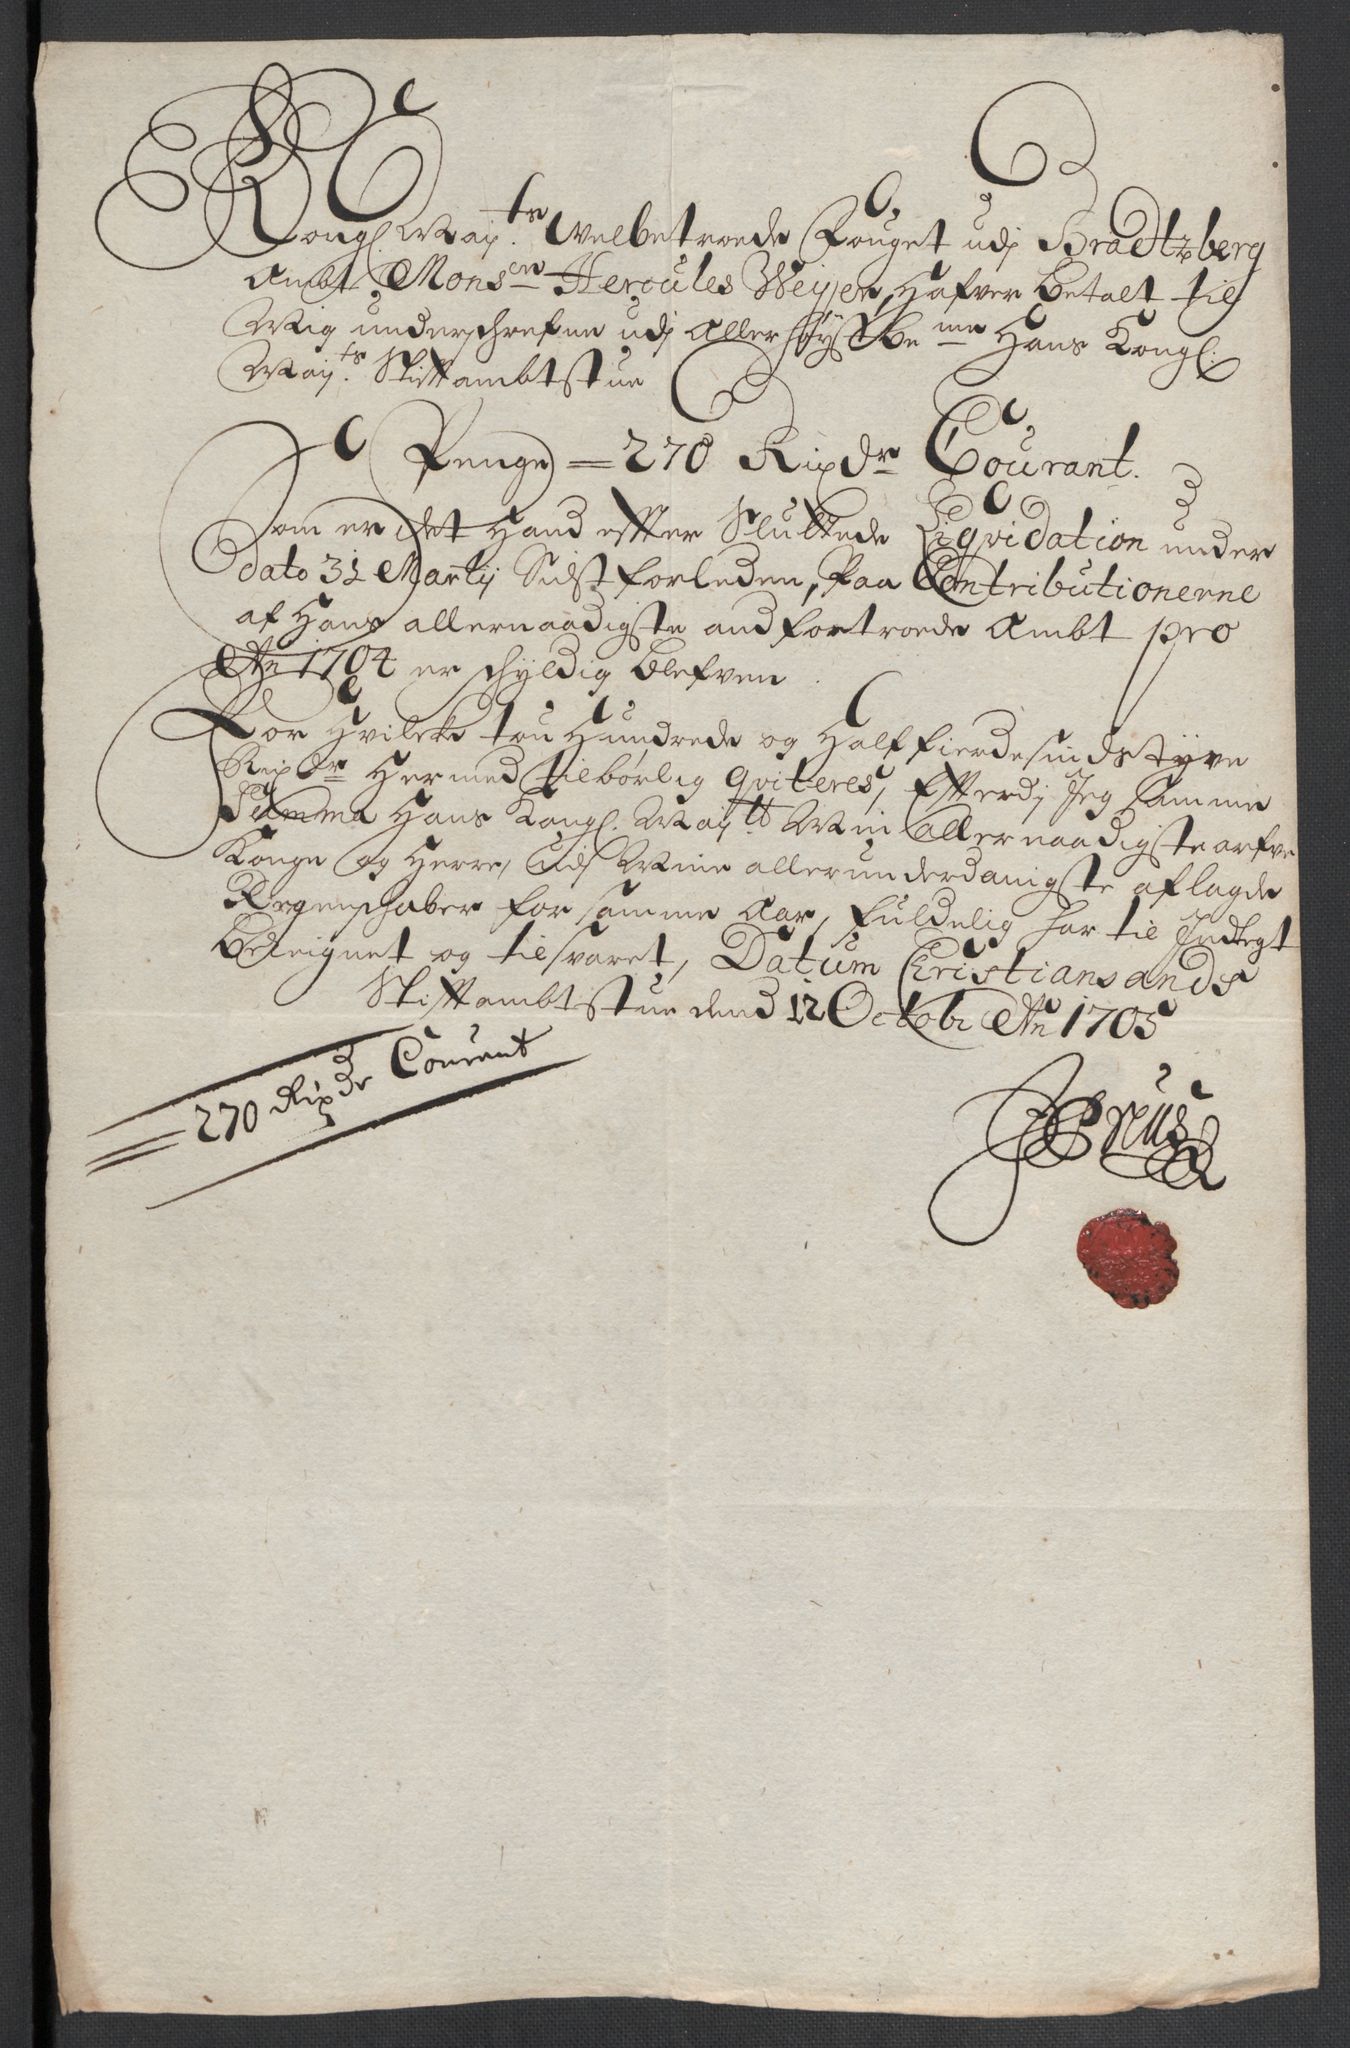 Kongl. May.ts Velbetroede Fouget udj Bradtzberg
Ambt, Mons.er Hercules Weyer, Hafver betalt til
Mig underschrefne udj Allerhøystbe.me Hans Kongl:
May.ts Stiftambtstue
Penge = 270 Rixdr Courant.
Som er det Hand efter Sluttede Liqvidation under
dato 31 Martij Sidstforleden, Paa Contributionerne
af Hans allernaadigste anfortroede Ambt pro
Ao 1704 er schyldig blefven
For Hvilke tou Hundrede og Halffierdesindstyve
Rixdr Hermed tilbørlig qviteres, Efterdj Jeg samme
Summa Hans Kongl. May.tt Min Allernaadigste arfve
Konge og Herre, udj Mine allerunderdanigste aflagde
Regenschaber for samme Aar, fuldelig har til Indtegt
bereignet og tilsvaret, Datum Christiansands
Stiftambtstue dend 12 Octobr Ao 1705
270 Rixdr Courant